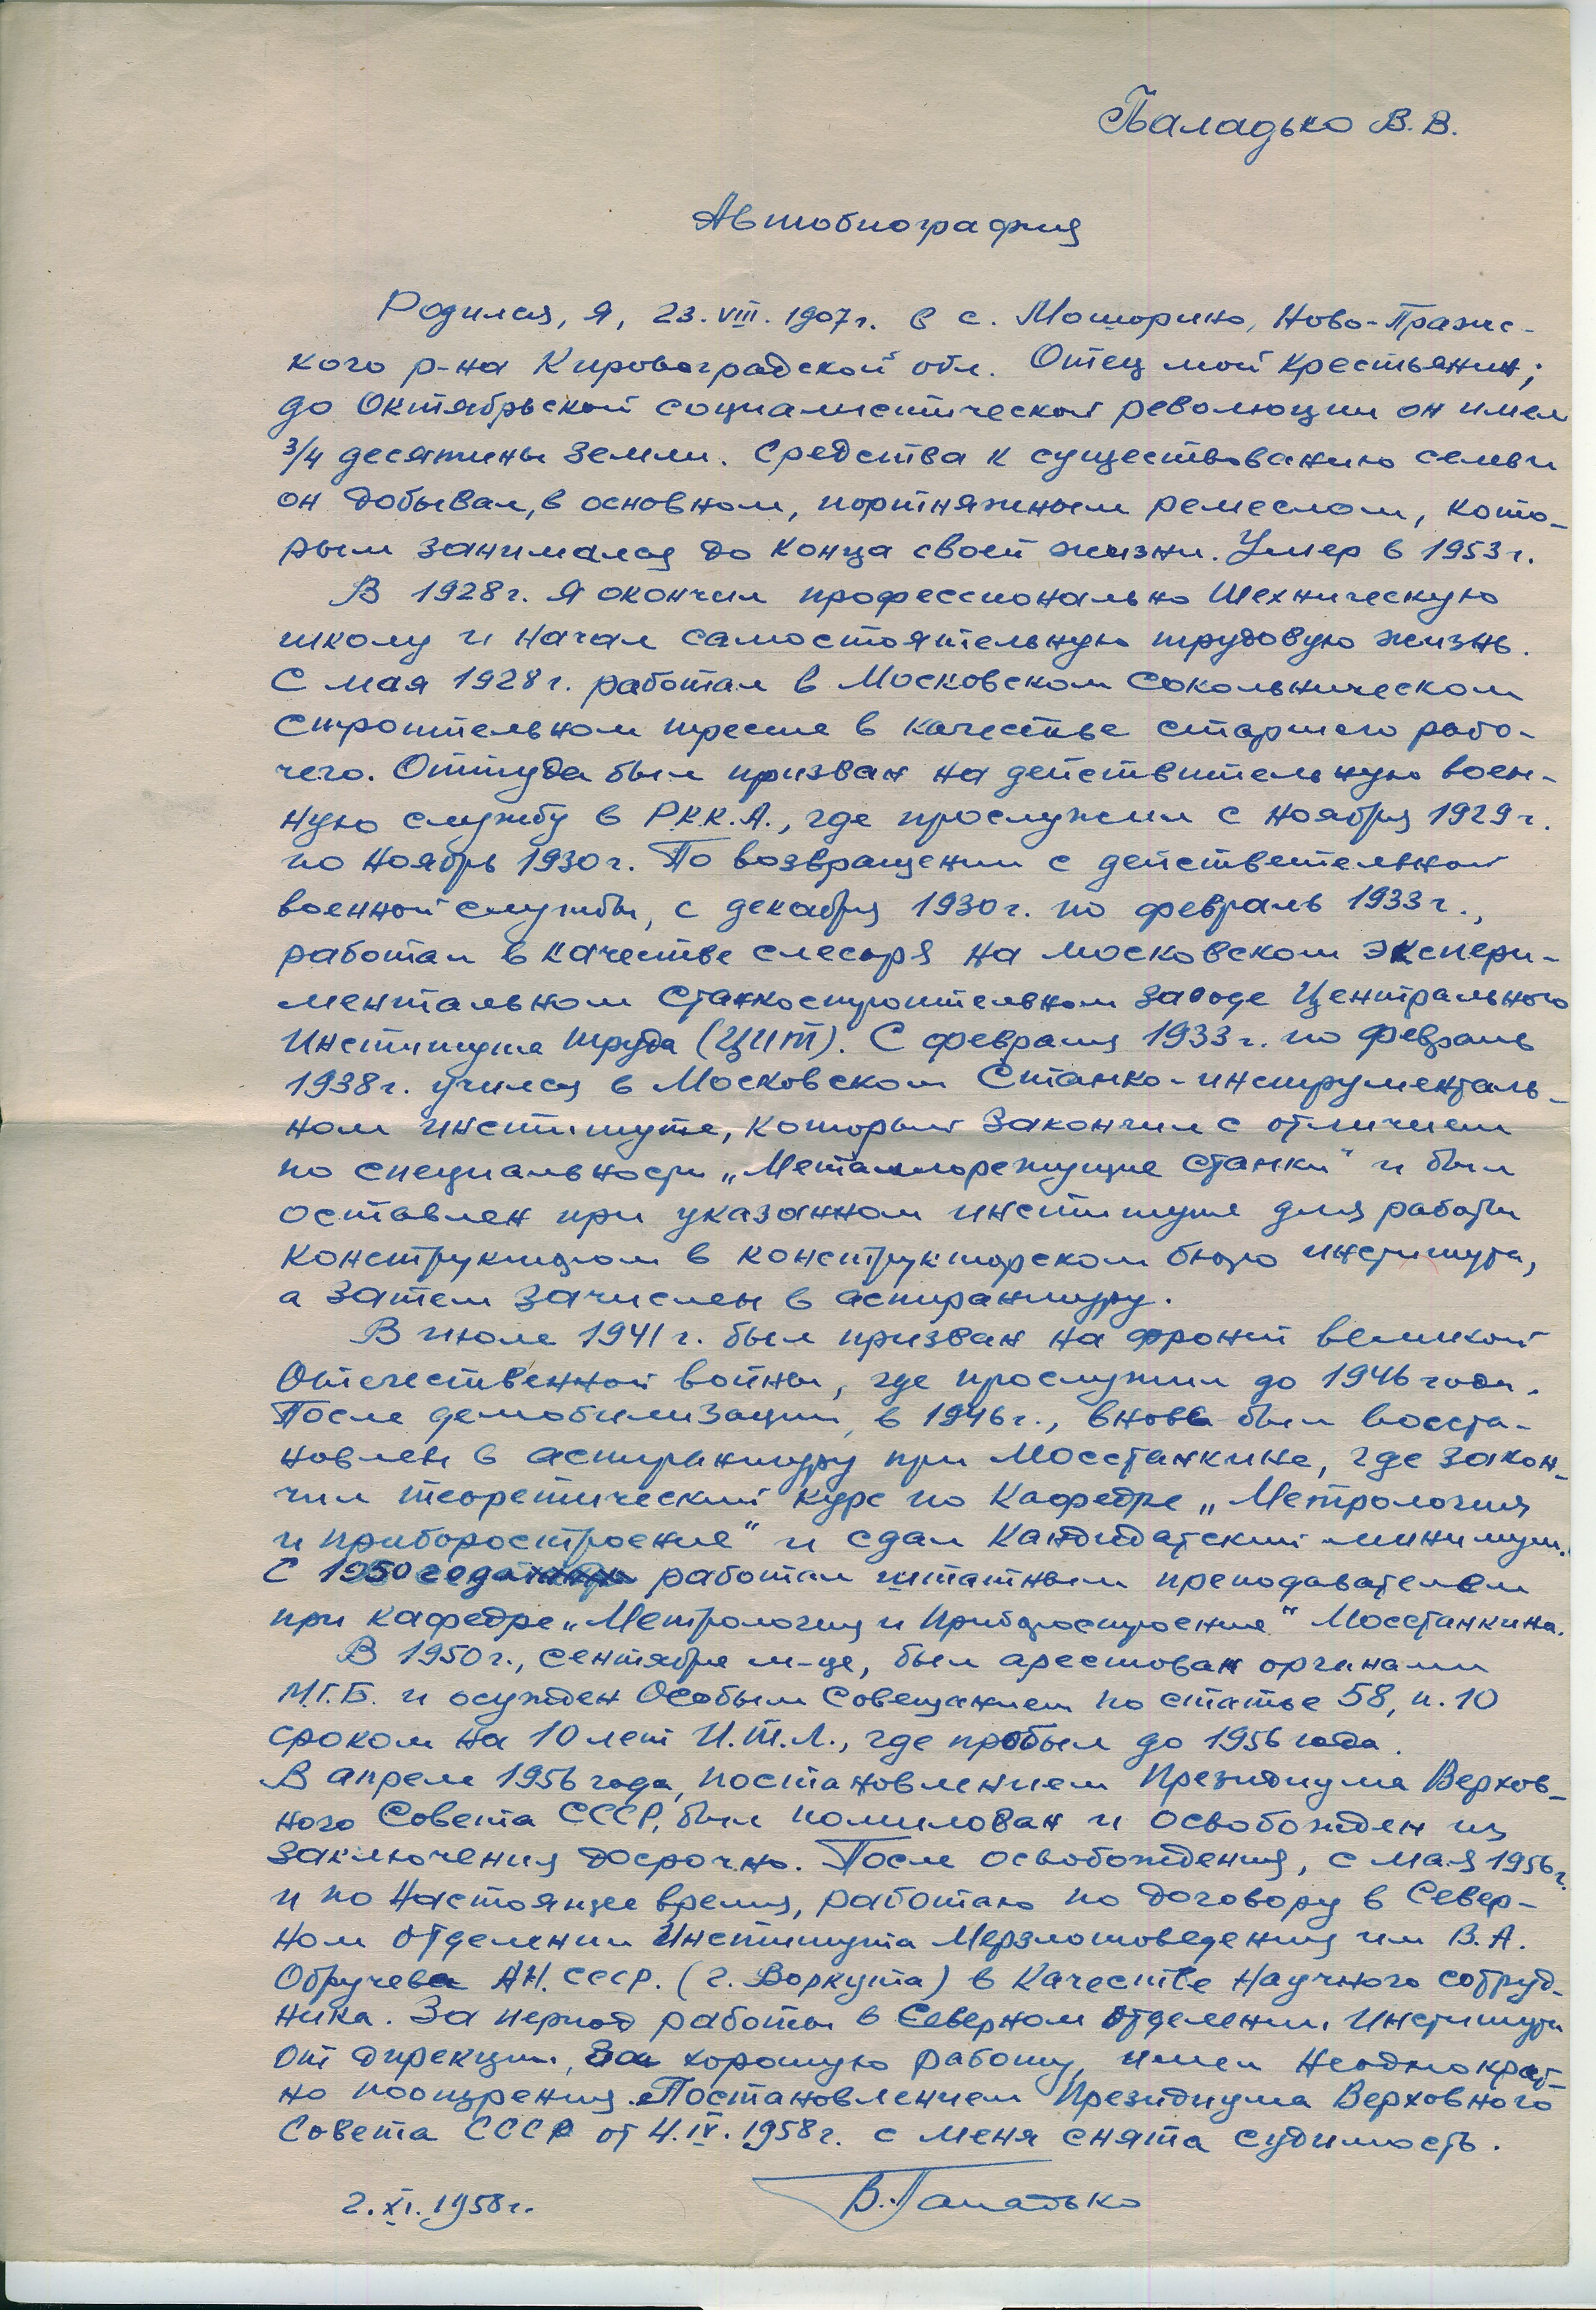 Баладько В. В.
Автобиография
Родился, я, 23. VIII. 1907 г. в с. Моторино, Ново-Пражс-
кого р-на Кировоградской обл. Отец мой крестьянин;
до Октябрьской социалистической революции он имел
3/4 десятины земли. Средства к существованию семьи
он добывал, в основном, портняжным ремеслом, кото-
рым занимался до конца своей жизни. Умер в 1953 г.
В 1928 г. я окончил профессионально техническую
школу и начал самостоятельную трудовую жизнь.
С мая 1928 г. работал в Московском Сокольническом
строительном тресте в качестве старшего рабо-
чего. Оттуда был призван на действительную воен-
ную службу в Р.К.К.А., где прослужил с ноября 1929 г.
по ноябрь 1930 г. По возвращении с действительной
военной службы, с декабря 1930 г. по февраль 1933 г.,
работал в качестве слесаря на московском экспери-
ментальном станкостроительном заводе Центрального
Института труда (ЦИТ). С февраля 1933 г. по февраль
1938 г. учился в Московском Станко-инструменталь-
ном институте, который закончил с отличием
по специальности „Металлорежущие станки" и был
оставлен при указанном институте для работы
конструктором в конструкторском бюро института,
а затем зачислен в аспирантуру.
В июле 1941 г. был призван на фронт великой
Отечественной войны, где прослужил до 1946 года.
После демобилизации, в 1946 г., вновь был восста-
новлен в аспирантуру при Мосстанкине, где закон-
чил теоретический курс по кафедре „Метрология
и приборостроение" и сдал кандидатский минимум.
С 1950 года работал штатным преподавателем
при кафедре „Метрология и Приборостроение" Мосстанкина.
В 1950 г., сентябре м-це, был арестован органами
М.Г.Б. и осужден Особым Совещанием по статье 58, п. 10
сроком на 10 лет И.Т.Л., где пробыл до 1956 года.
В апреле 1956 года, постановлением Президиума Верхов-
ного Совета СССР, был помилован и освобожден из
заключения досрочно. После освобождения, с мая 1956 г.
и по настоящее время, работаю по договору в Север-
ном отделении Института Мерзлотоведения им В. А.
Обручева АН. СССР. (г. Воркута) в качестве научного сотруд-
ника. За период работы в Северном отделении Института
от дирекции, за хорошую работу, имел неоднократ-
но поощрения. Постановлением Президиума Верховного
Совета СССР от 4. IV. 1958 г. с меня снята судимость.
2. XI. 1958 г. В. Баладько